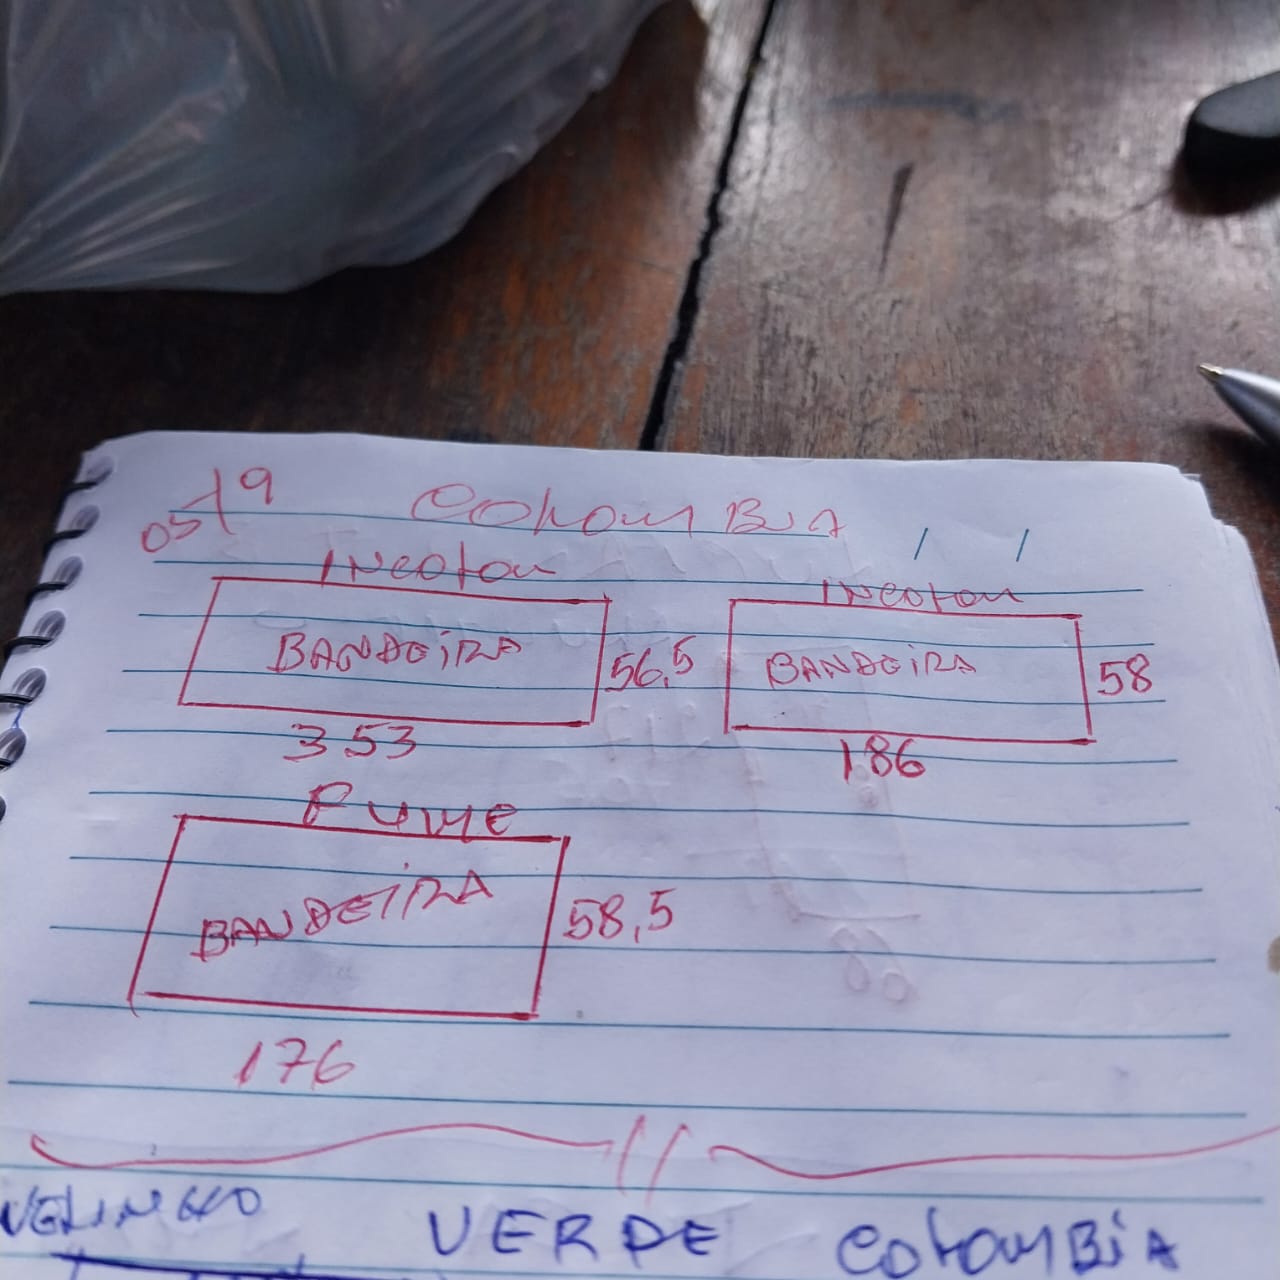 05/19 COLOMBIA
INCOLOR INCOLOR
BANDEIRA 56,5 BANDEIRA 58
353 186
FUME
BANDEIRA 58,5
176
VERDE COLOMBIA